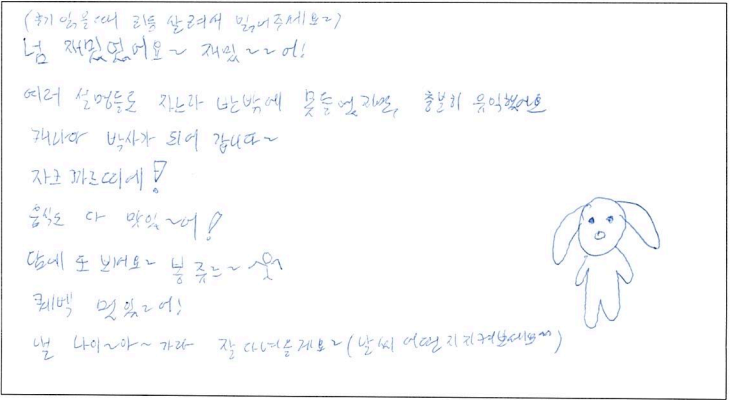 (후기 읽을 때 리듬 살려서 읽어주세요~)
넘 재밌었어요~ 재밌~~어!
여러 설명들도 자느라 반밖에 못들었지만, 충분히 유익했어요
캐나다 박사가 되어 갑니다~
자크 까르띠에!
음식도 다 맛있~어!
담에 또 봐여요~ 봉쥬~~
퀘벡 멋있~어!
낼 나이~아~가라 잘 다녀올게요~ (날씨 어떤지 지켜보세요~)